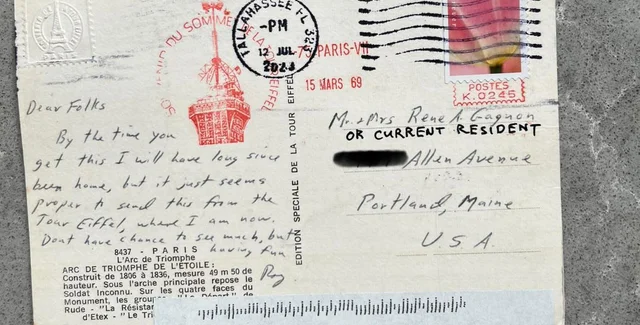 SOUVENIR DU SOMMET DE LA TOUR EIFFEL
TALLAHASSEE FL 323
-PM
12 JUL
2023
75-PARIS-VII
15 MARS 69
POSTES
K.0245
Dear Folks
By the time you
get this I will have long since
been home, but it just seems
proper to send this from the
Tour Eiffel, where I am now.
Dont have chance to see much, but
having fun
Roy
8437 - PARIS
L'Arc de Triomphe
ARC DE TRIOMPHE DE L'ETOILE:
Construit de 1806 à 1836, mesure 49 m 50 de
hauteur. Sous l'arche principale repose le
Soldat Inconnu. Sur les quatre faces du
Monument, les groupes "Le Départ" de
Rude - "La Résistance"
d'Etex - "Le Tri
EDITION SPECIALE DE LA TOUR EIFFEL
Mr. + Mrs Rene A Gagnon
OR CURRENT RESIDENT
Allen Avenue
Portland, Maine
U.S.A.